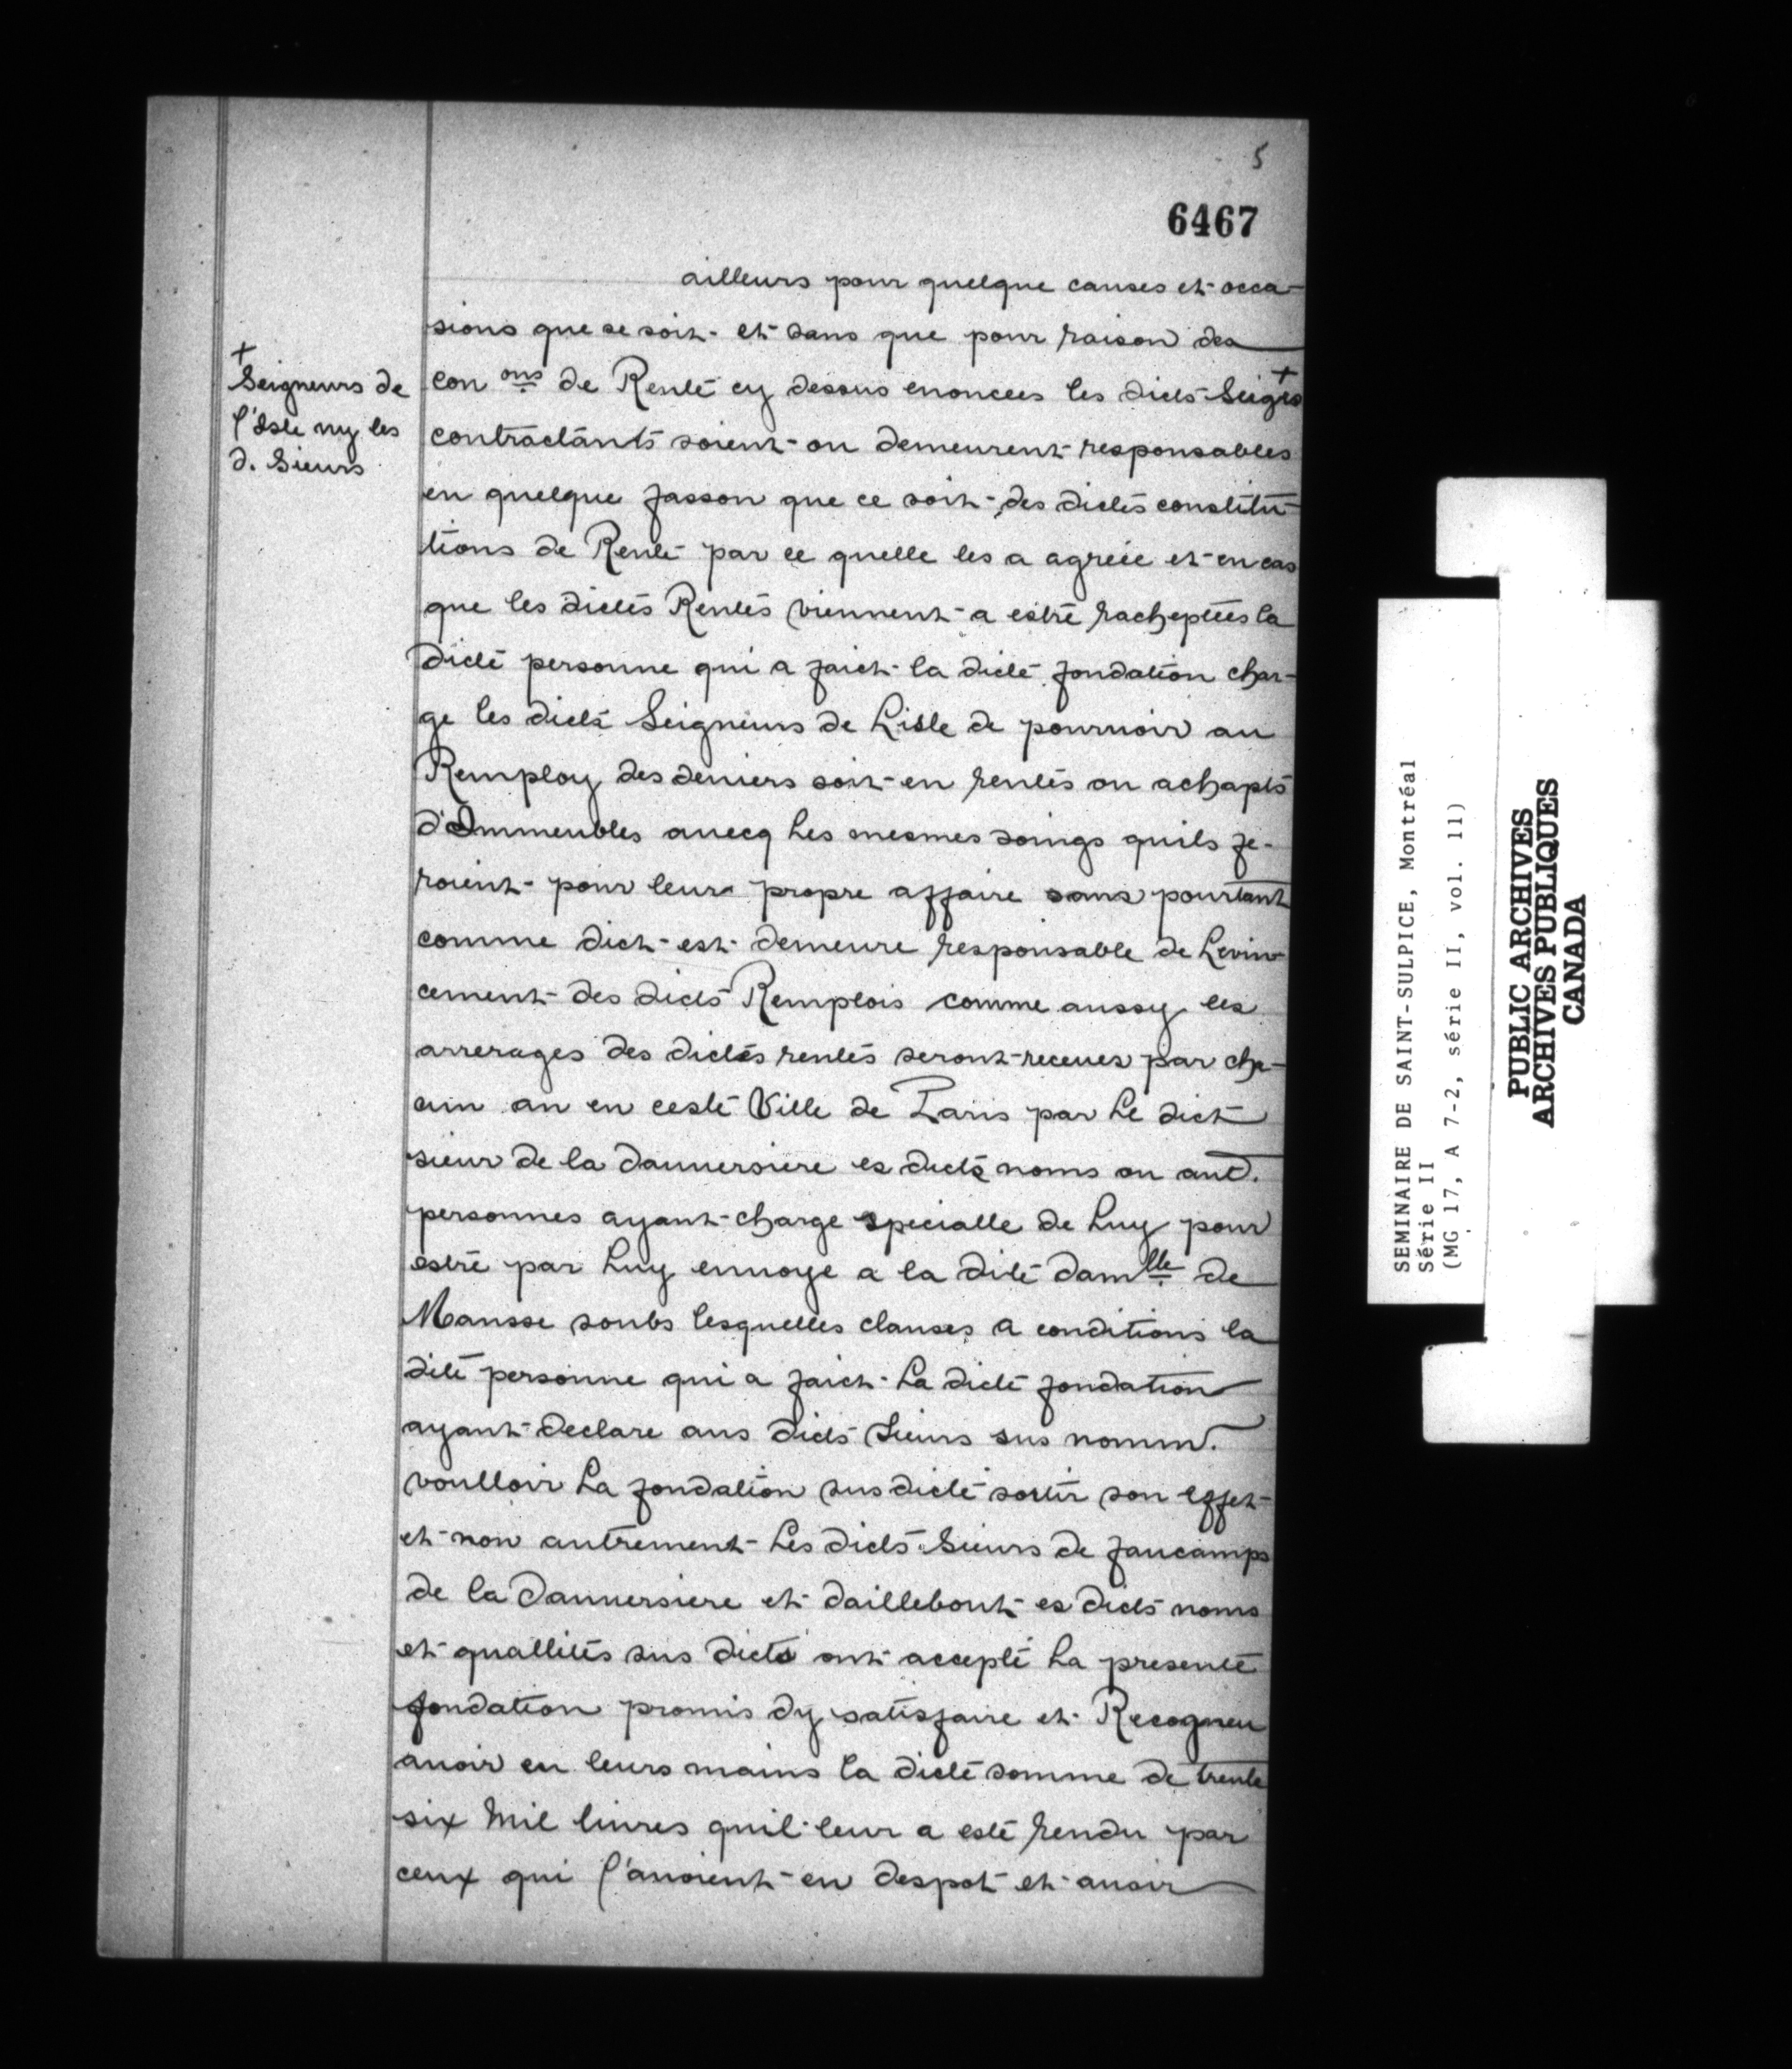 5
6467
ailleurs pour quelque causes et occa-
sions que se soit et sans que pour raison des
con ons de Rente cy dessus enoncees les dicts Seigrs +
+
Seigneurs de
l'Isle ny les
d. Sieurs
contractants soient ou demeurent responsables
en quelque fasson que ce soit des dictes constitu-
tions de Rente par ce quelle les a agréée et en cas
que les dictes Rentes viennent a estre racheptées la
dicte personne qui a faict la dicte fondation char-
ge les dicts Seigneurs de Lisle de pourvoir au
Remploy des deniers soit en rentes ou achapts
d'Immeubles avecq Les mesmes soings quils fe-
roient pour leurs propre affaire sans pourtant
comme dict est demeure responsable de Levin-
cement des dicts Remplois comme aussy les
arrerages des dictes rentes seront receues par cha-
cun an en ceste Ville de Paris par Le dict
sieur de la dauversiere es dicts noms ou aut.
personnes ayant charge specialle de Luy pour
estre par Luy envoye a la dite damlle de
Mansse soubs lesquelles clauses a conditions la
dite personne qui a faict La dicte fondation
ayant declare aus dicts Sieurs sus nomm.
voulloir La fondation sus dicte sortir son effet
et non autrement Les dicts Sieurs de faucamps
de la Dauversiere et daillebout es dicts noms
et quallités sus dicts ont accepté La presente
fondation promis dy satisfaire et Recogneu
avoir en leurs mains la dicte somme de trente
six Mil livres quil leur a esté rendu par
ceux qui l'avoient en despot et avoir
SEMINAIRE DE SAINT-SULPICE, Montréal
Série II
(MG 17, A 7-2, série II, vol. 11)
PUBLIC ARCHIVES
ARCHIVES PUBLIQUES
CANADA